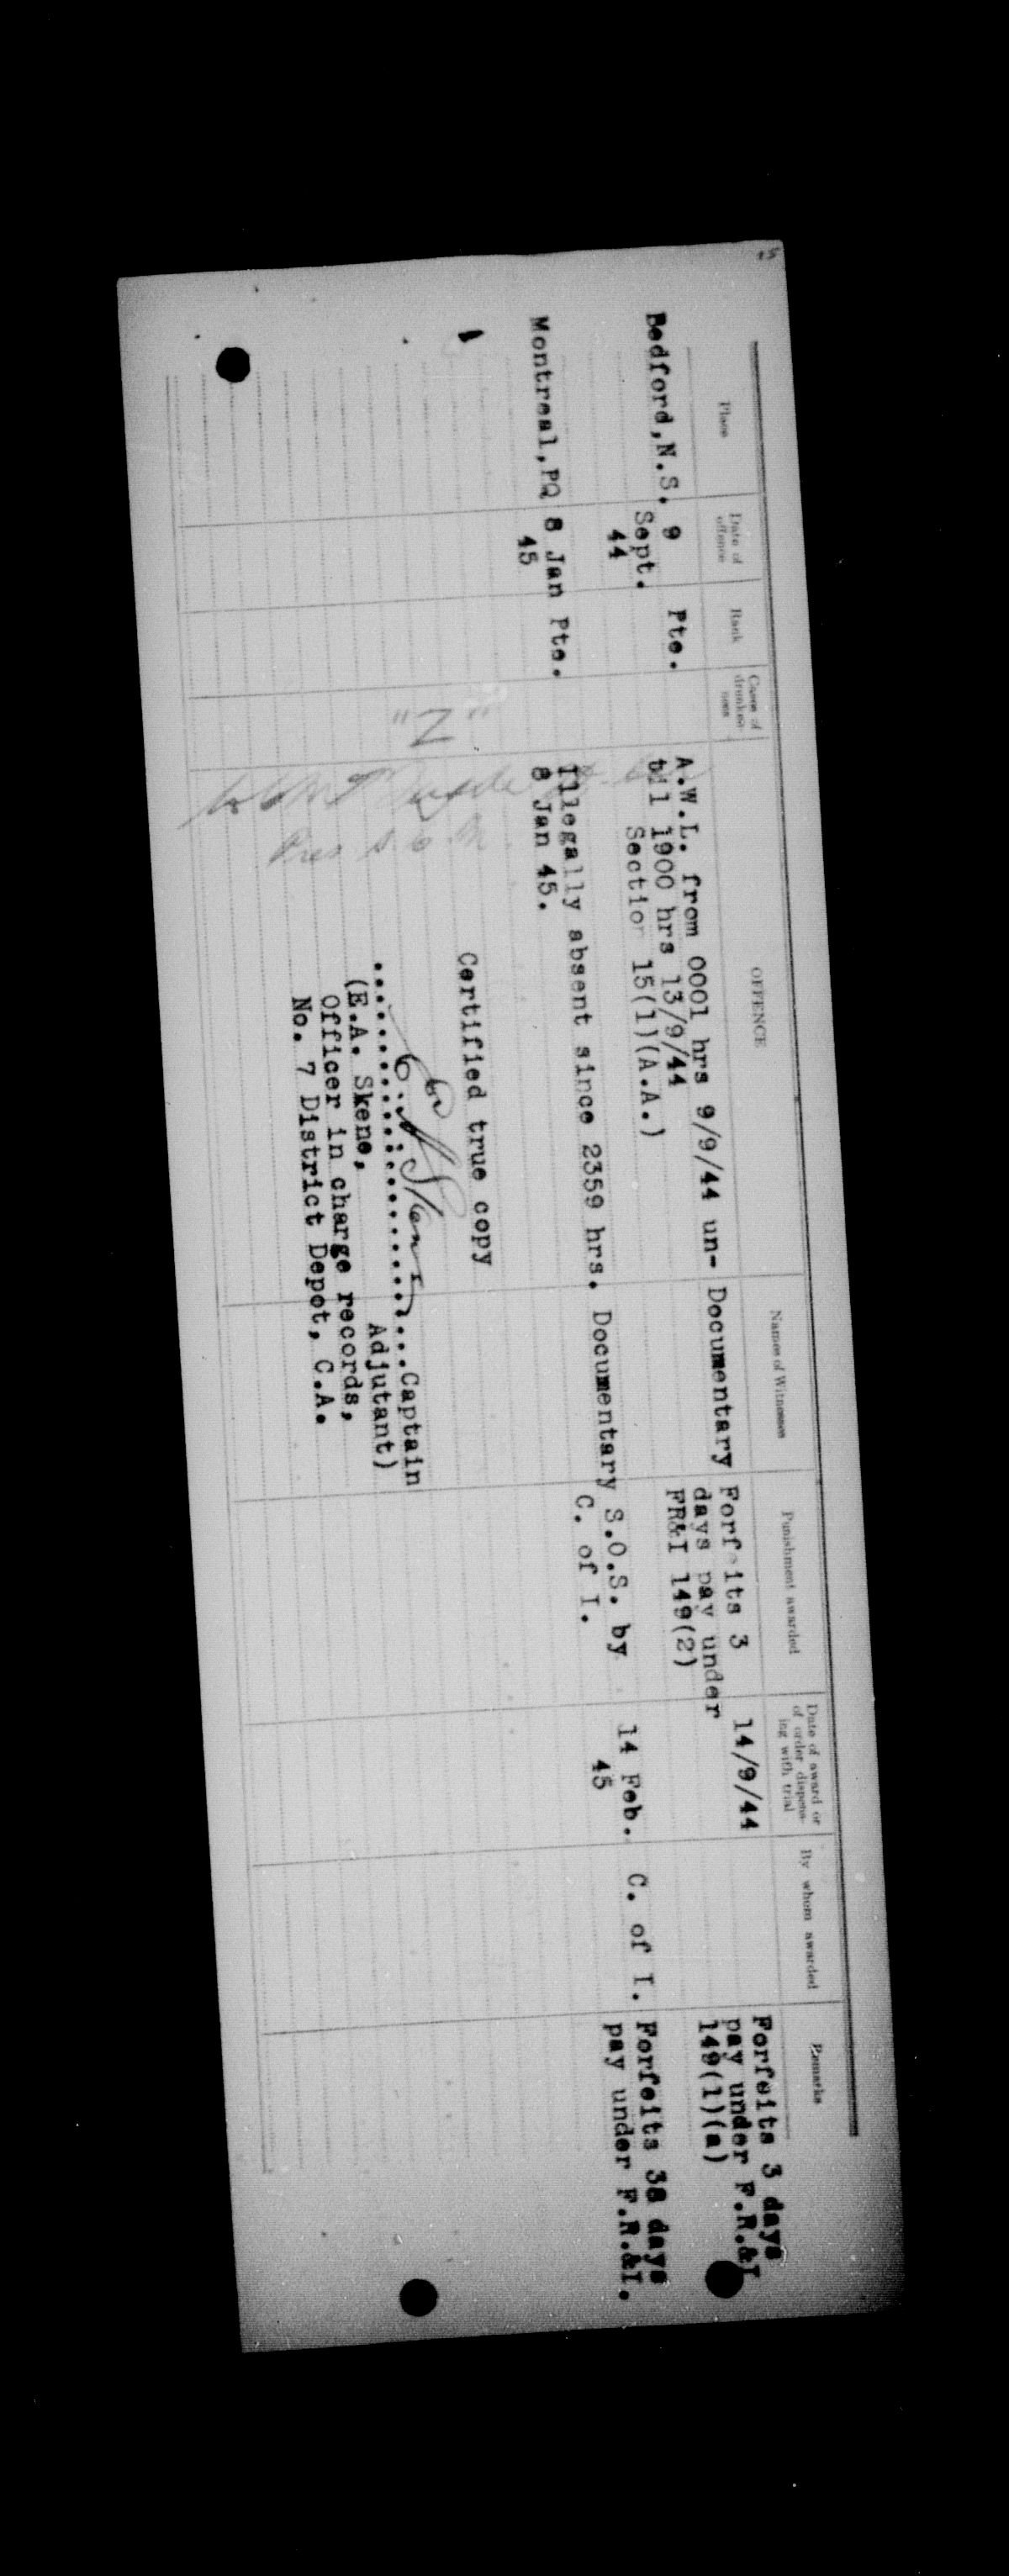 Place
Date of offence
Rank
Cases of drunkenness
OFFENCE
Names of Witnesses
Punishment awarded
Date of award or of order dispensing with trial
By whom awarded
Remarks
Bedford,N.S. 9 Sept. 44 Pte.
A.W.L. from 0001 hrs 9/9/44 un-
til 1900 hrs 13/9/44
Section 15(1)(A.A.)
Documentary
Forfeits 3
days pay under
FR&I 149(2)
14/9/44
Forfeits 3 days
pay under F.R.&I
149(1)(a)
Montreal,PQ 8 Jan 45 Pte.
Illegally absent since 2359 hrs.
8 Jan 45.
Documentary
S.O.S. by
C. of I.
14 Feb. 45
C. of I.
Forfeits 38 days
pay under F.R.&I.
Certified true copy
"Z"
Pres
E.A. Skene
..............................Captain
(E.A. Skene, Adjutant)
Officer in charge records,
No. 7 District Depot, C.A.